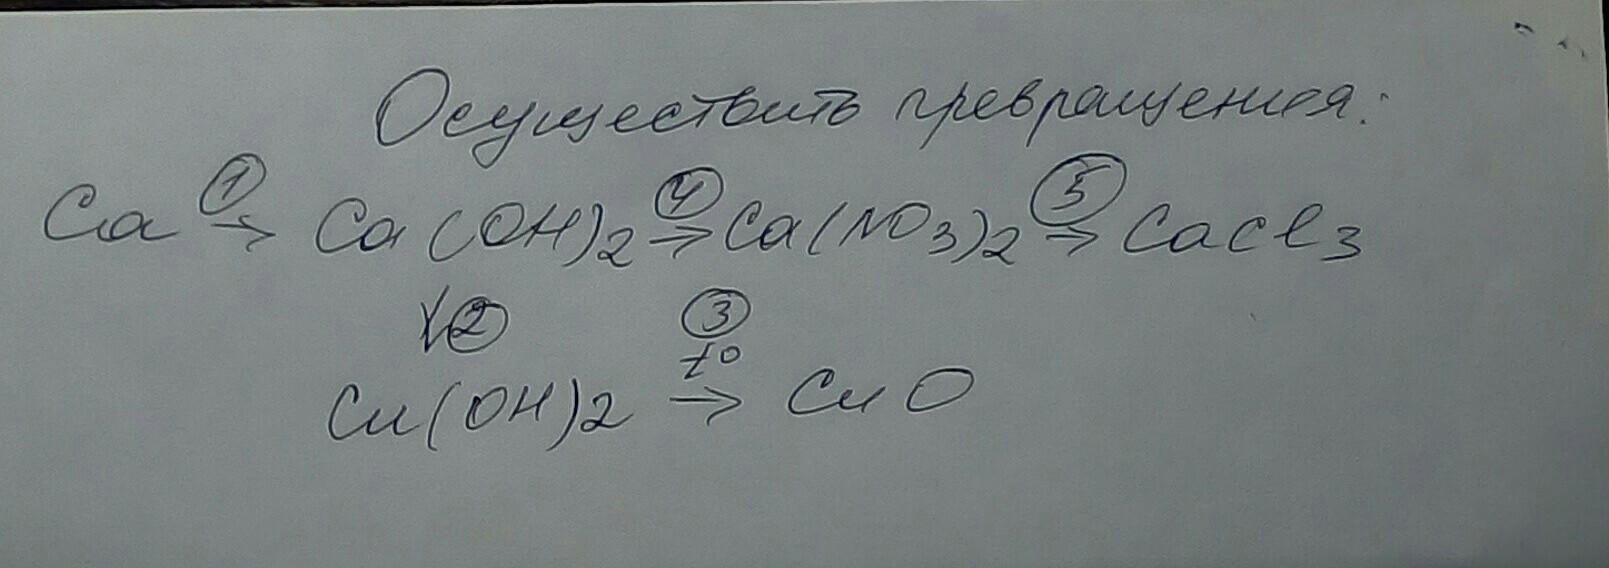 Осуществить превращения:
Ca ①→ Ca(OH)2 ④→ Ca(NO3)2 ⑤→ CaCl3
↓②
Cu(OH)2 ③ t° → CuO